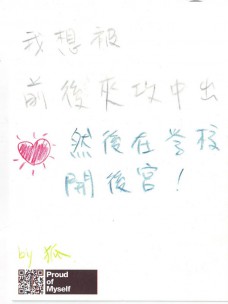 我想被
前後來攻中出
然後在学校
開後宮！
by 狐
Proud
of
Myself